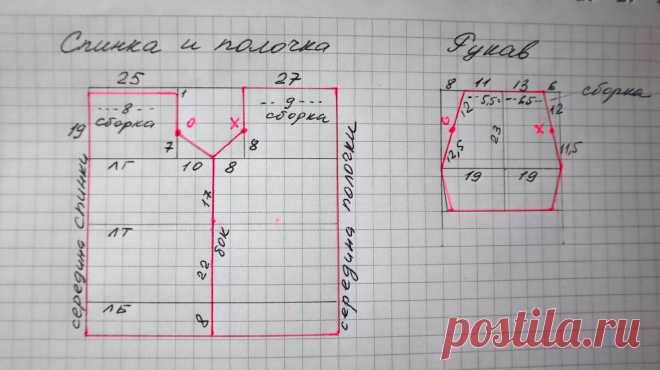 Спинка и полочка
25
27
1
8
сборка
О
Х
9
сборка
19
7
8
ЛГ
10
8
17
ЛТ
бок
22
ЛБ
8
середина спинки
середина полочки
Рукав
8
11
13
6
сборка
5,5
6,5
12
12
О
Х
23
12,5
11,5
19
19
postila.ru